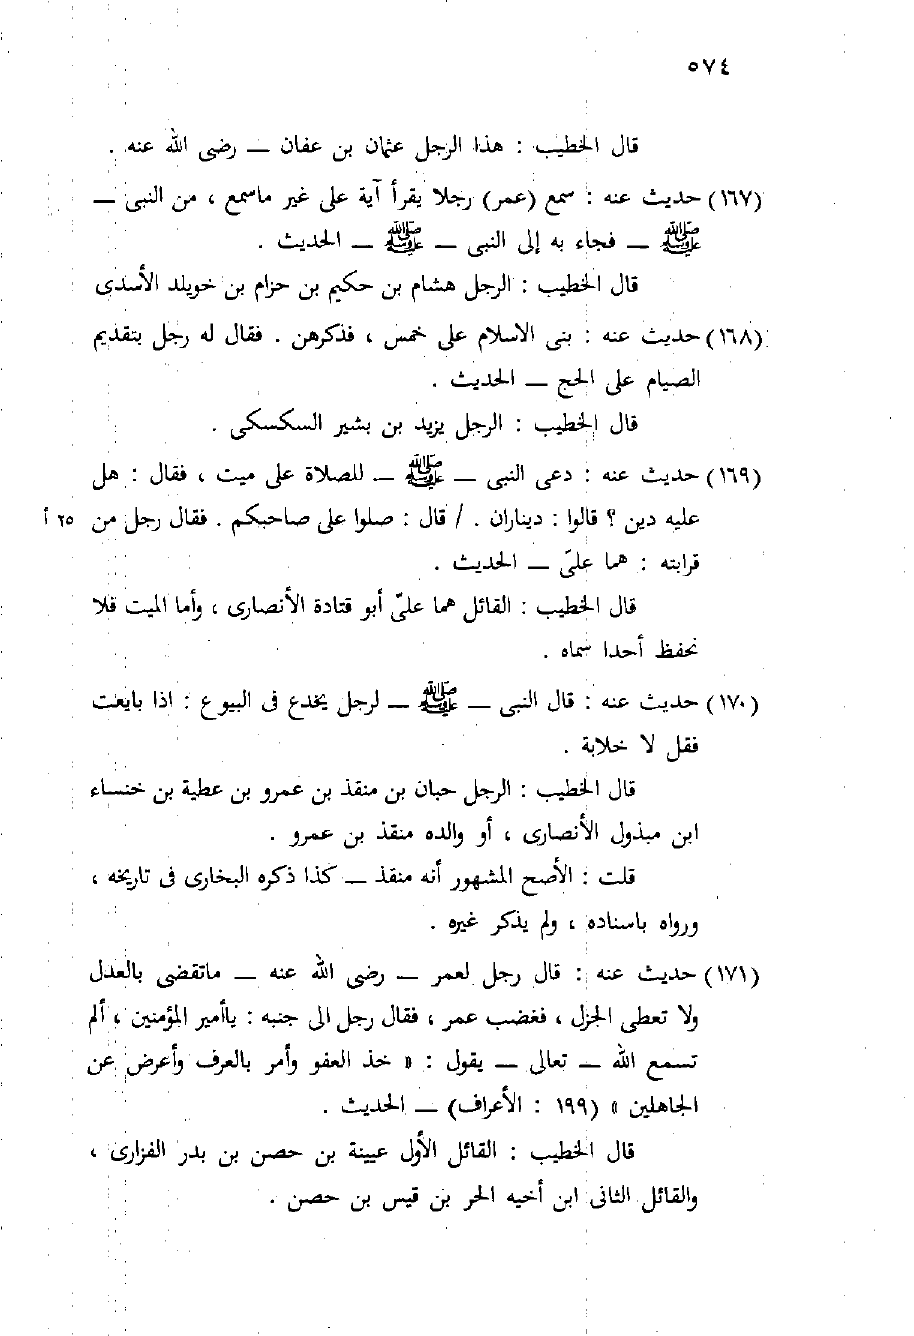 ٥٧٤
قال الخطيب : هذا الرجل عثمان بن عفان — رضى الله عنه .
(١٦٧) حديث عنه : سمع (عمر) رجلا يقرأ آية على غير ماسمع ، من النبى —
ﷺ — فجاء به إلى النبى — ﷺ — الحديث .
قال الخطيب : الرجل هشام بن حكيم بن حزام بن خويلد الأسدى
(١٦٨) حديث عنه : بنى الاسلام على خمس ، فذكرهن . فقال له رجل بتقديم
الصيام على الحج — الحديث .
قال الخطيب : الرجل يزيد بن بشير السكسكى .
(١٦٩) حديث عنه : دعى النبى — ﷺ — للصلاة على ميت ، فقال : هل
عليه دين ؟ قالوا : ديناران . / قال : صلوا على صاحبكم . فقال رجل من ٢٥ أ
قرابته : هما علىّ — الحديث .
قال الخطيب : القائل هما علىّ أبو قتادة الأنصارى ، وأما الميت فلا
نحفظ أحدا سماه .
(١٧٠) حديث عنه : قال النبى — ﷺ — لرجل يخدع فى البيوع : اذا بايعت
فقل لا خلابة .
قال الخطيب : الرجل حبان بن منقذ بن عمرو بن عطية بن خنساء
ابن مبذول الأنصارى ، أو والده منقذ بن عمرو .
قلت : الأصح المشهور أنه منقذ — كذا ذكره البخارى فى تاريخه ،
ورواه باسناده ، ولم يذكر غيره .
(١٧١) حديث عنه : قال رجل لعمر — رضى الله عنه — ماتقضى بالعدل
ولا تعطى الجزل ، فغضب عمر ، فقال رجل الى جنبه : ياأمير المؤمنين ، ألم
تسمع الله — تعالى — يقول : « خذ العفو وأمر بالعرف وأعرض عن
الجاهلين » (١٩٩ : الأعراف) — الحديث .
قال الخطيب : القائل الأول عيينة بن حصن بن بدر الفزارى ،
والقائل الثانى ابن أخيه الحر بن قيس بن حصن .